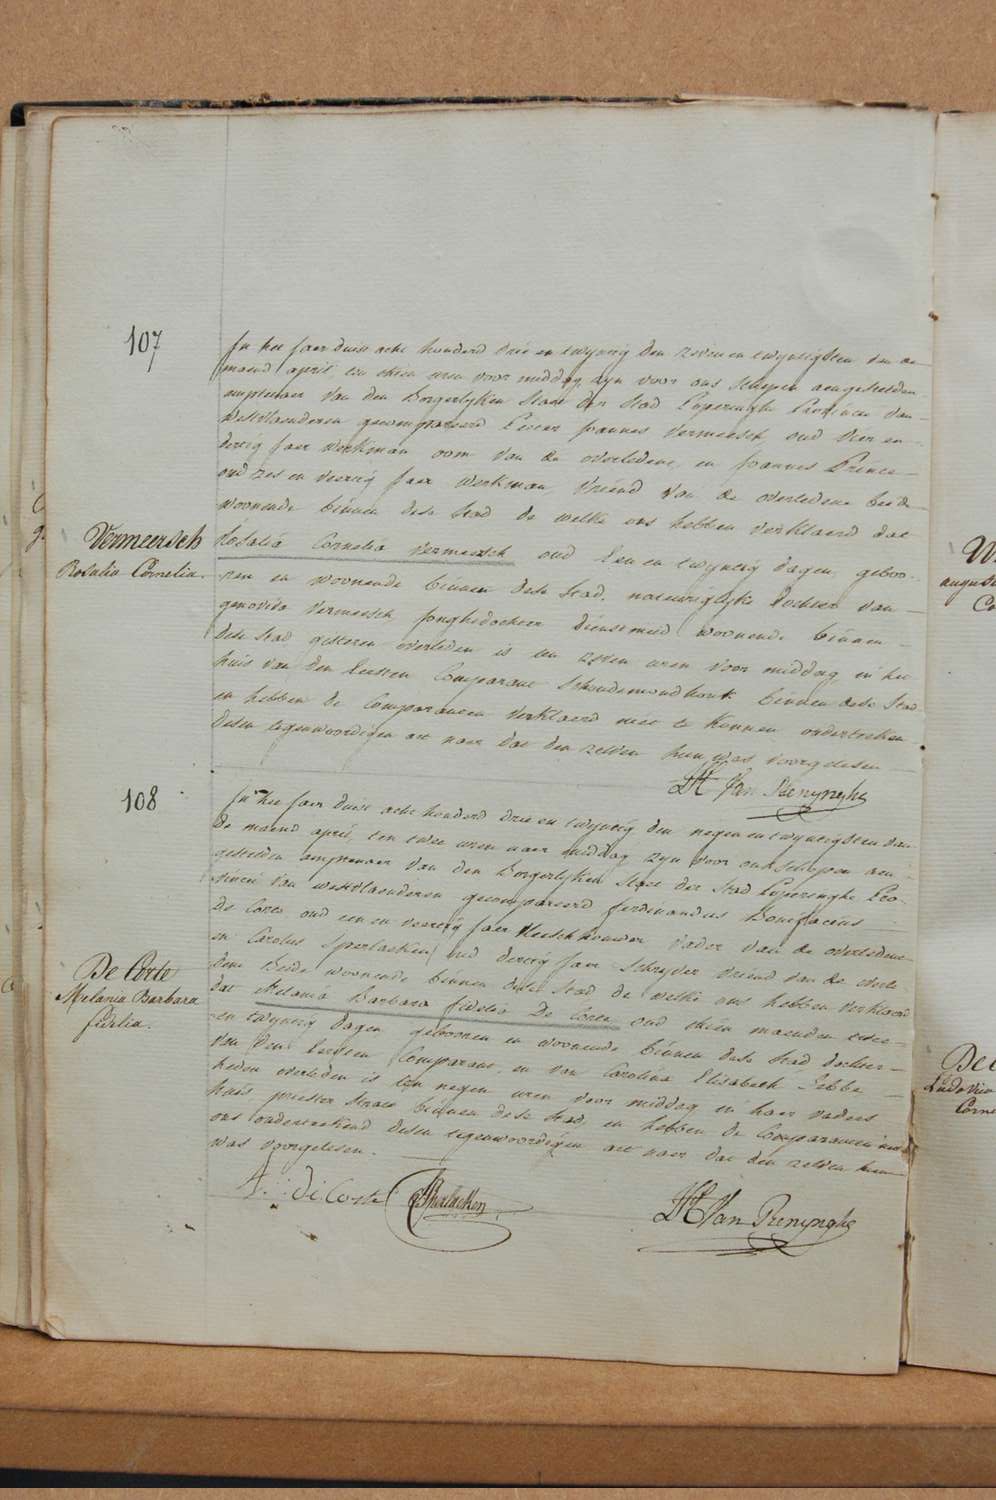 107
In het Jaer duist acht honderd drie en twyntig den zeven en twyntigsten van de
maend april, ten thien uren voor middag, zyn voor ons schepen aengestelden
amptenaer van den Borgerlyken Staet der Stad Poperinghe Provincie van
Westvlaenderen gecompareerd Pieter Joannes Vermeesch, oud vier en
dertig Jaer werkman oom van de overledene, en Joannes Prince
oud zes en veertig Jaer werkman, vriend van de overledene beide
woonende binnen dese stad de welke ons hebben verklaerd dat
Vermeersch
Rosalia Cornelia.
Rosalia Cornelia Vermeesch oud een en twyntig dagen, geboo-
ren en woonende binnen dese stad, natuerelyke dochter van
genoveva Vermeesch, Jonghedochter dienstmeid woonende binnen
dese stad, gisteren overleden is ten zeven uren voor middag, in het
huis van den eersten Comparant Schoudemondhouk binnen dese stad
en hebben de Comparanten verklaerd niet te konnen onderteeken
desen tegenwoordigen act naer dat den zelven hun was voorgelesen
Van Renynghe
108
In het Jaer duist acht honderd drie en twyntig den negen en twyntigsten van
de maend april, ten twee uren naer middag zyn voor ons schepen aen-
gestelden amptenaer van den Borgerlyken Staet der Stad Poperinghe Pro-
vincie van westvlaenderen gecompareerd ferdinandus Bonefacius
De Corte oud een en veertig Jaer Vleeschhouwer vader van de overledene
en Carolus Sperlaeken, oud dertig Jaer Schryver vriend van de overle-
De Corte
Melania Barbara
fidelia.
dene Beide woonende binnen dese stad de welke ons hebben verklaerd
dat Melania Barbara fidelia De Corte oud thien maenden
en twyntig dagen geboren en woonende binnen dese stad dochter
van den eersten Comparant, en van Carolina Elisabeth
heden overleden is ten negen uren voor middag in haer vaders
huis priester straet binnen dese stad, en hebben de Comparanten
ons onderteekend desen tegenwoordigen act naer dat den zelven hun
was voorgelesen.
De Corte
Sperlaeken
Van Renynghe